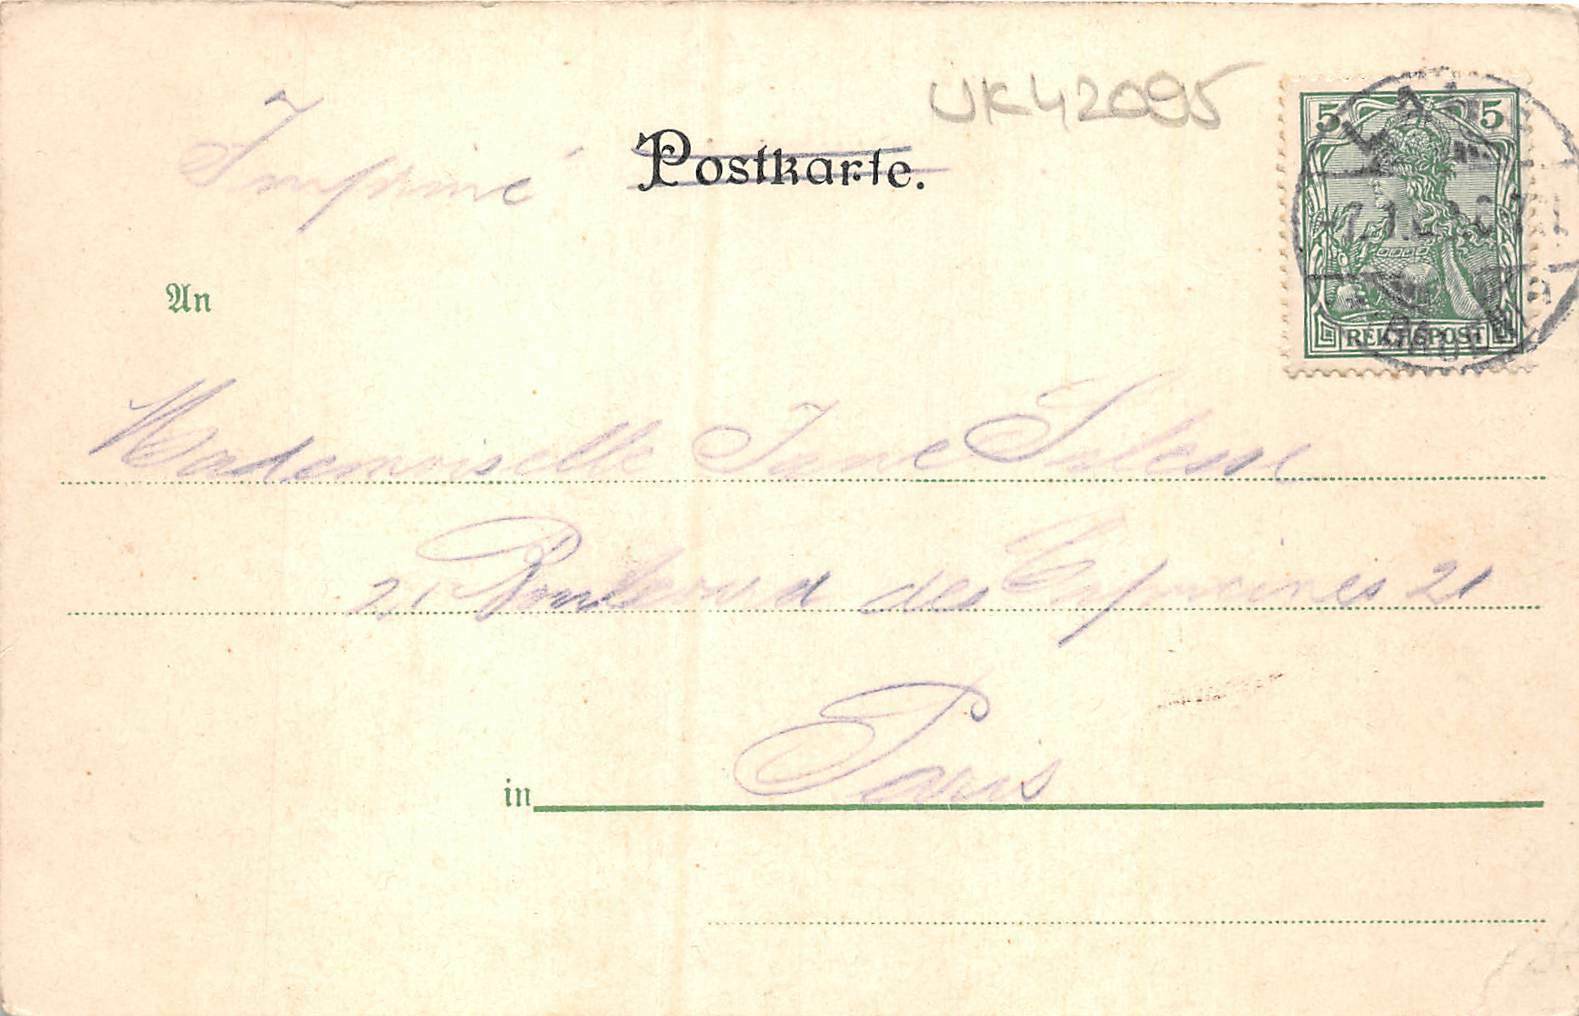 UK42095
Imprimé Postkarte.
5 5
REICHSPOST
An
Mademoiselle Jane
21 Boulevard des Capucines 21
in Paris